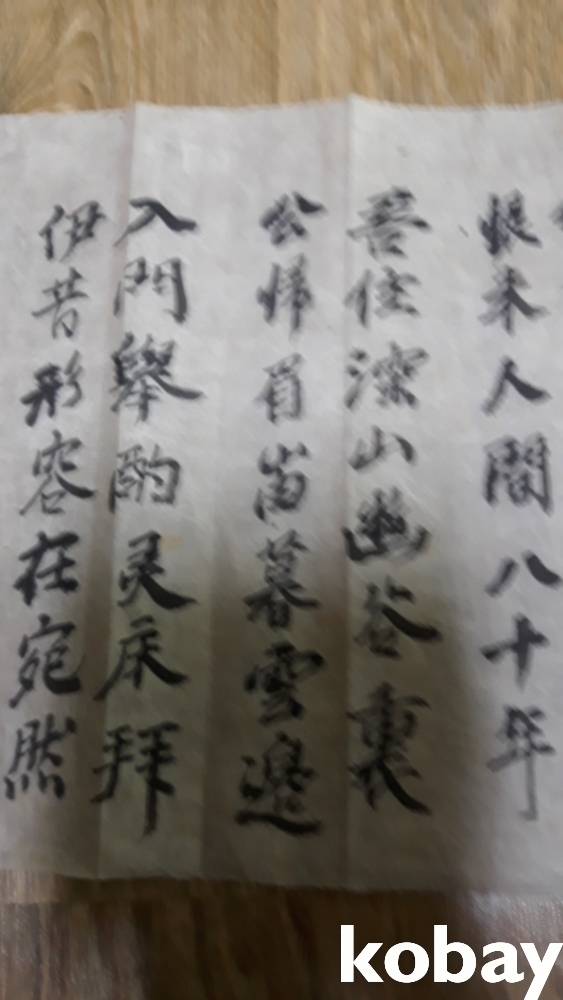 悵来人間八十年
吾住深山幽谷裏
公歸首崗暮雲邊
入門舉酌灵床拜
伊昔形容在宛然
kobay